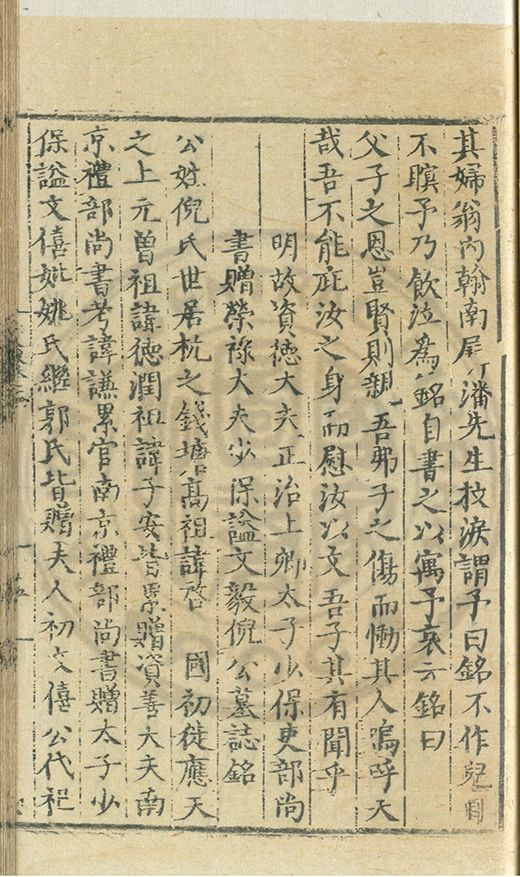 其婦翁內翰南屏潘先生抆淚謂予曰銘不作兒目
不瞑予乃飲泣爲銘自書之以寓予哀云銘曰
父子之恩豈賢則親吾弗子之傷而慟其人嗚呼天
哉吾不能庇汝之身而慰汝以文吾子其有聞乎
明故資德大夫正治上卿太子少保吏部尚
書贈榮祿大夫少保謚文毅倪公墓誌銘
公姓倪氏世居杭之錢塘高祖諱啓 國初徙應天
之上元曾祖諱德潤祖諱子安皆累贈資善大夫南
京禮部尚書考諱謙累官南京禮部尚書贈太子少
保謚文僖妣姚氏繼郭氏皆贈夫人初文僖公代祀